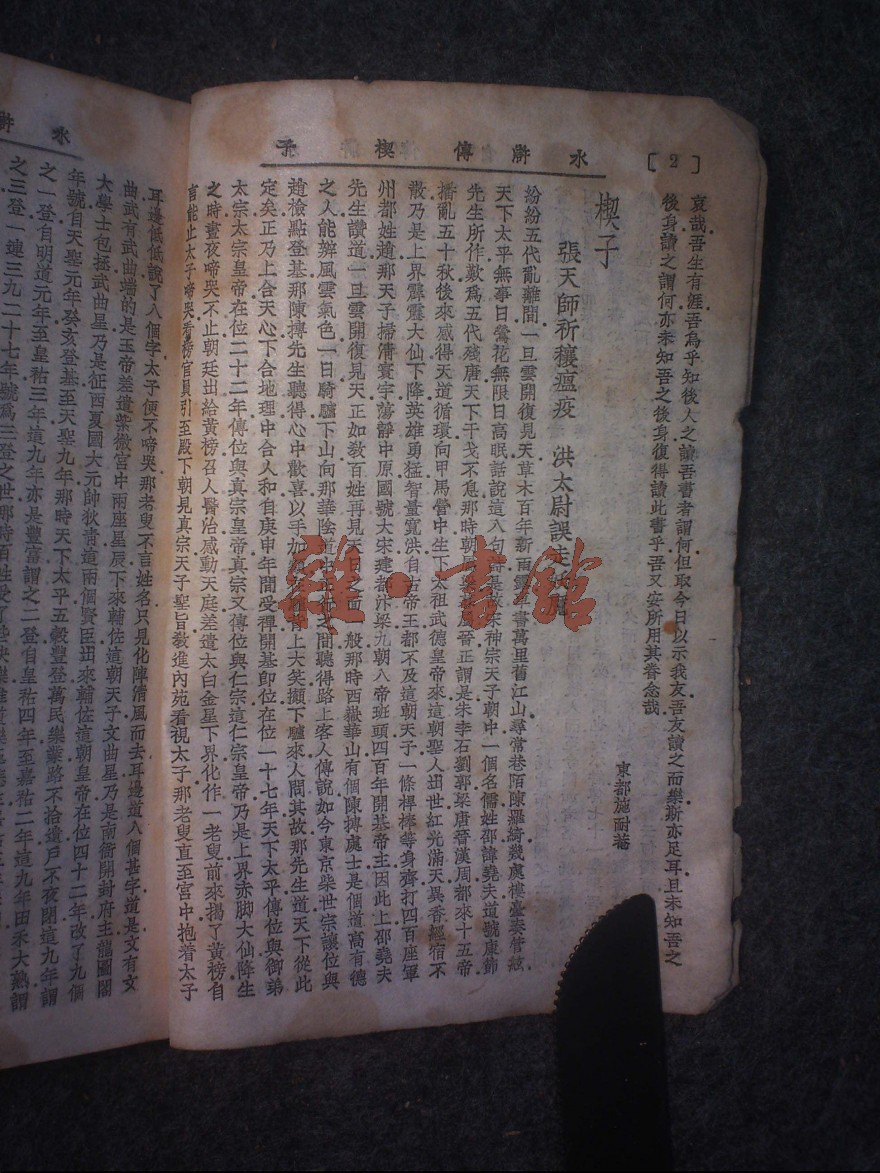 水滸傳 楔子
[2]
哀哉吾生有涯吾爲乎知後人之讀吾書者謂何但取今日以示我友吾友讀之而樂斯亦足耳且未知吾之
後身讀之謂何亦未知吾之後身復得讀此書乎吾又安所用其眷念哉
東都施耐菴
楔子
張天師祈禳瘟疫 洪太尉誤走
紛紛五代亂離間一旦雲開復見天草木百年新雨露車書萬里舊江山尋常巷陌陳羅綺幾處樓臺奏管絃
天下太平無事日鶯花無限日高眠話說這八句詩是故宋神宗天子朝中一個名儒姓邵諱堯夫道號康節
先生所作歎爲五代殘唐天下干戈不息那時朝晉正謂是朱李石劉郭梁唐晉漢周都來十五帝
播亂五十秋後來感得天道循環向甲馬營中生下太祖武德皇帝來這朝聖人出世紅光滿天異香經宿不
散乃是上界霹靂大仙下降英雄勇猛智量寬洪自古帝王都不及這朝天子一條桿棒等身齊打四百座軍
州都姓趙那天子掃清寰宇蕩靜中原國號大宋建都汴梁九朝八帝班頭四百年開基帝主因此上邵堯夫
先生讚道一旦雲開復見天正如教百姓再見天日之面一般那時西嶽華山有個陳摶處士是個道高有德
之人能辨風雲氣色一日騎驢下山向那華陰道中正行之間聽得路上客人傳說如今東京柴世宗讓位與
趙檢點登基那陳摶先生聽得心中歡喜以手加額在驢背上大笑攧下驢來人問其故那先生道天下從此
定矣正乃上合天心下合地理中合人和自庚申年間受禪開基卽位在位一十七年天下太平傳位與御弟
太宗太宗皇帝在位二十二年傳位與真宗皇帝真宗又傳位與仁宗這仁宗皇帝乃是上界赤脚大仙降生
之時晝夜啼哭不止朝廷出給黃榜召人醫治感動天庭差遣太白金星下界化作一老叟前來揭了黃榜自
言能止太子啼哭看榜官員引至殿下朝見真宗天子聖旨教進內苑看視太子那老叟直至宮中抱着太子
水滸
耳邊低低說了八個字太子便不啼哭那老叟不言姓名只見化陣清風而去耳邊道八個甚字道是文有文
曲武有武曲端的是玉帝差遣紫微宮中兩座星辰下來輔佐這朝天子文曲星乃是南衙開封府主龍圖閣
大學士包拯武曲星乃是征西夏國大元帥狄青這兩個賢臣出來輔佐這朝皇帝在位四十二年改了九個
年號自天聖元年癸亥登基至天聖九年那時天下太平五穀豐登萬民樂業路不拾遺戶不夜閉這九年謂
之一登自明道元年至皇祐三年這九年亦是豐富謂之二登自皇祐四年至嘉祐二年這九年田禾大熟謂
之三登一連三九二十七年號爲三登之世那時百姓受了些快樂
雜·書館